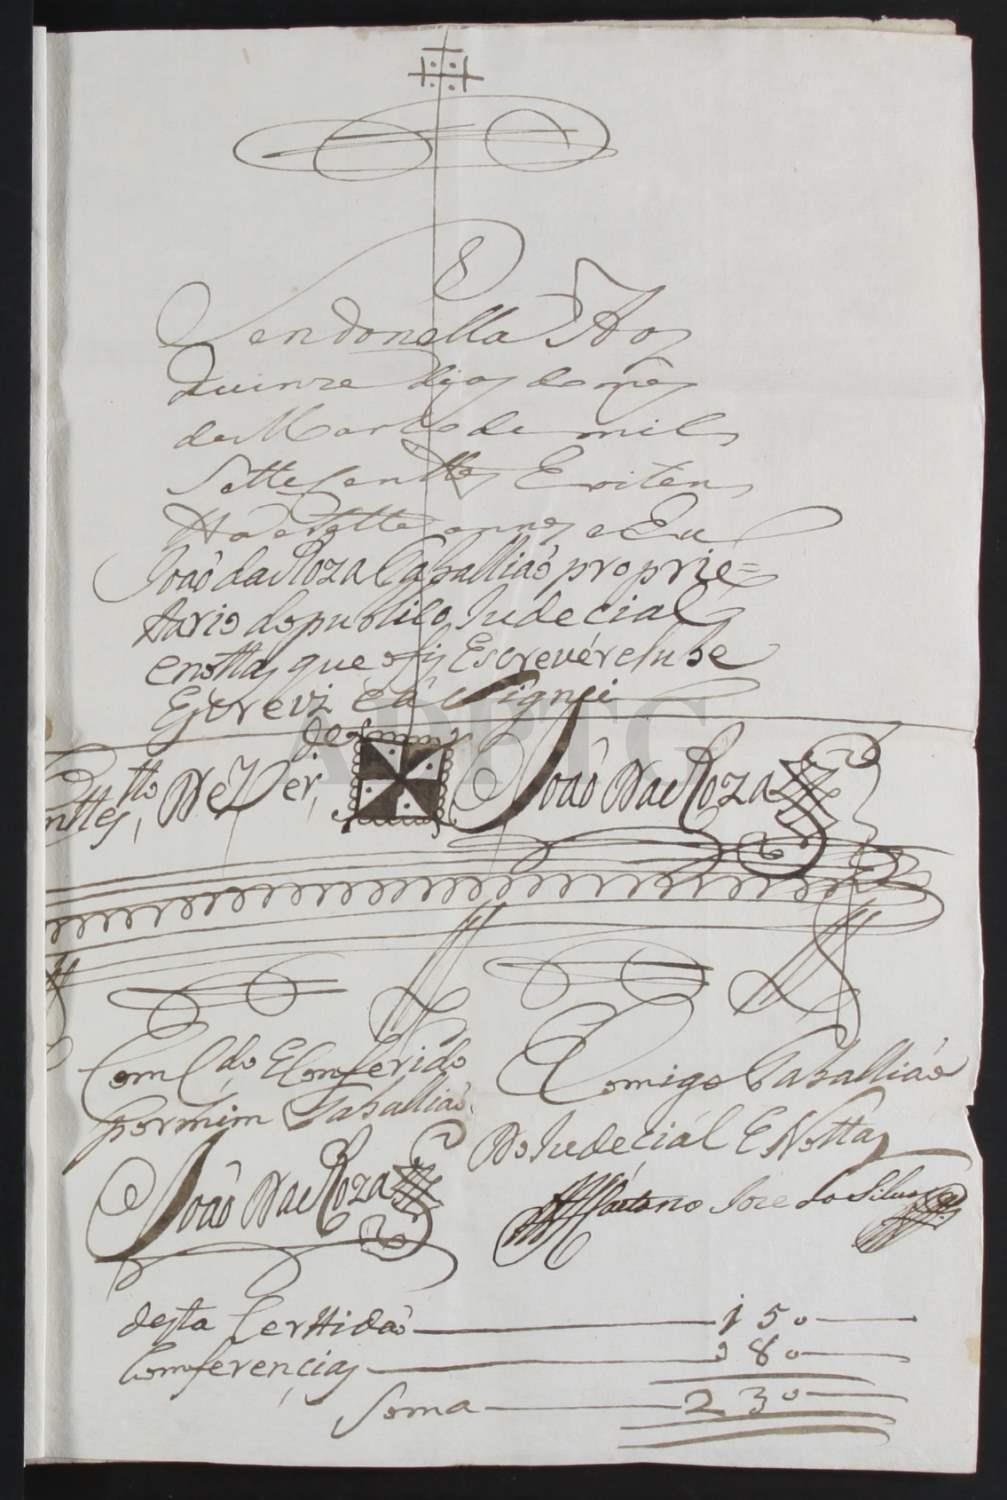 Vendonella Aos
Quinze dias do mes
de Marco de mil
Sette Centtos E oiten
tta e Sette annos e Eu
Joaõ da Roza Taballiaõ proprie=
tario do publico Judecial
e nottas que o fis Escrever e sube
Escrevi e a Signei
de
nttes, tto De Ver,
Joaõ Da Roza
Com C.do E Conferido
por mim Taballiaõ
Joaõ Da Roza
Comigo Taballiaõ
Do Judecial E Notta
Caetano Joze da Silva
desta Certtidaõ 150
Comferencias 080
Soma 230
ADPTG